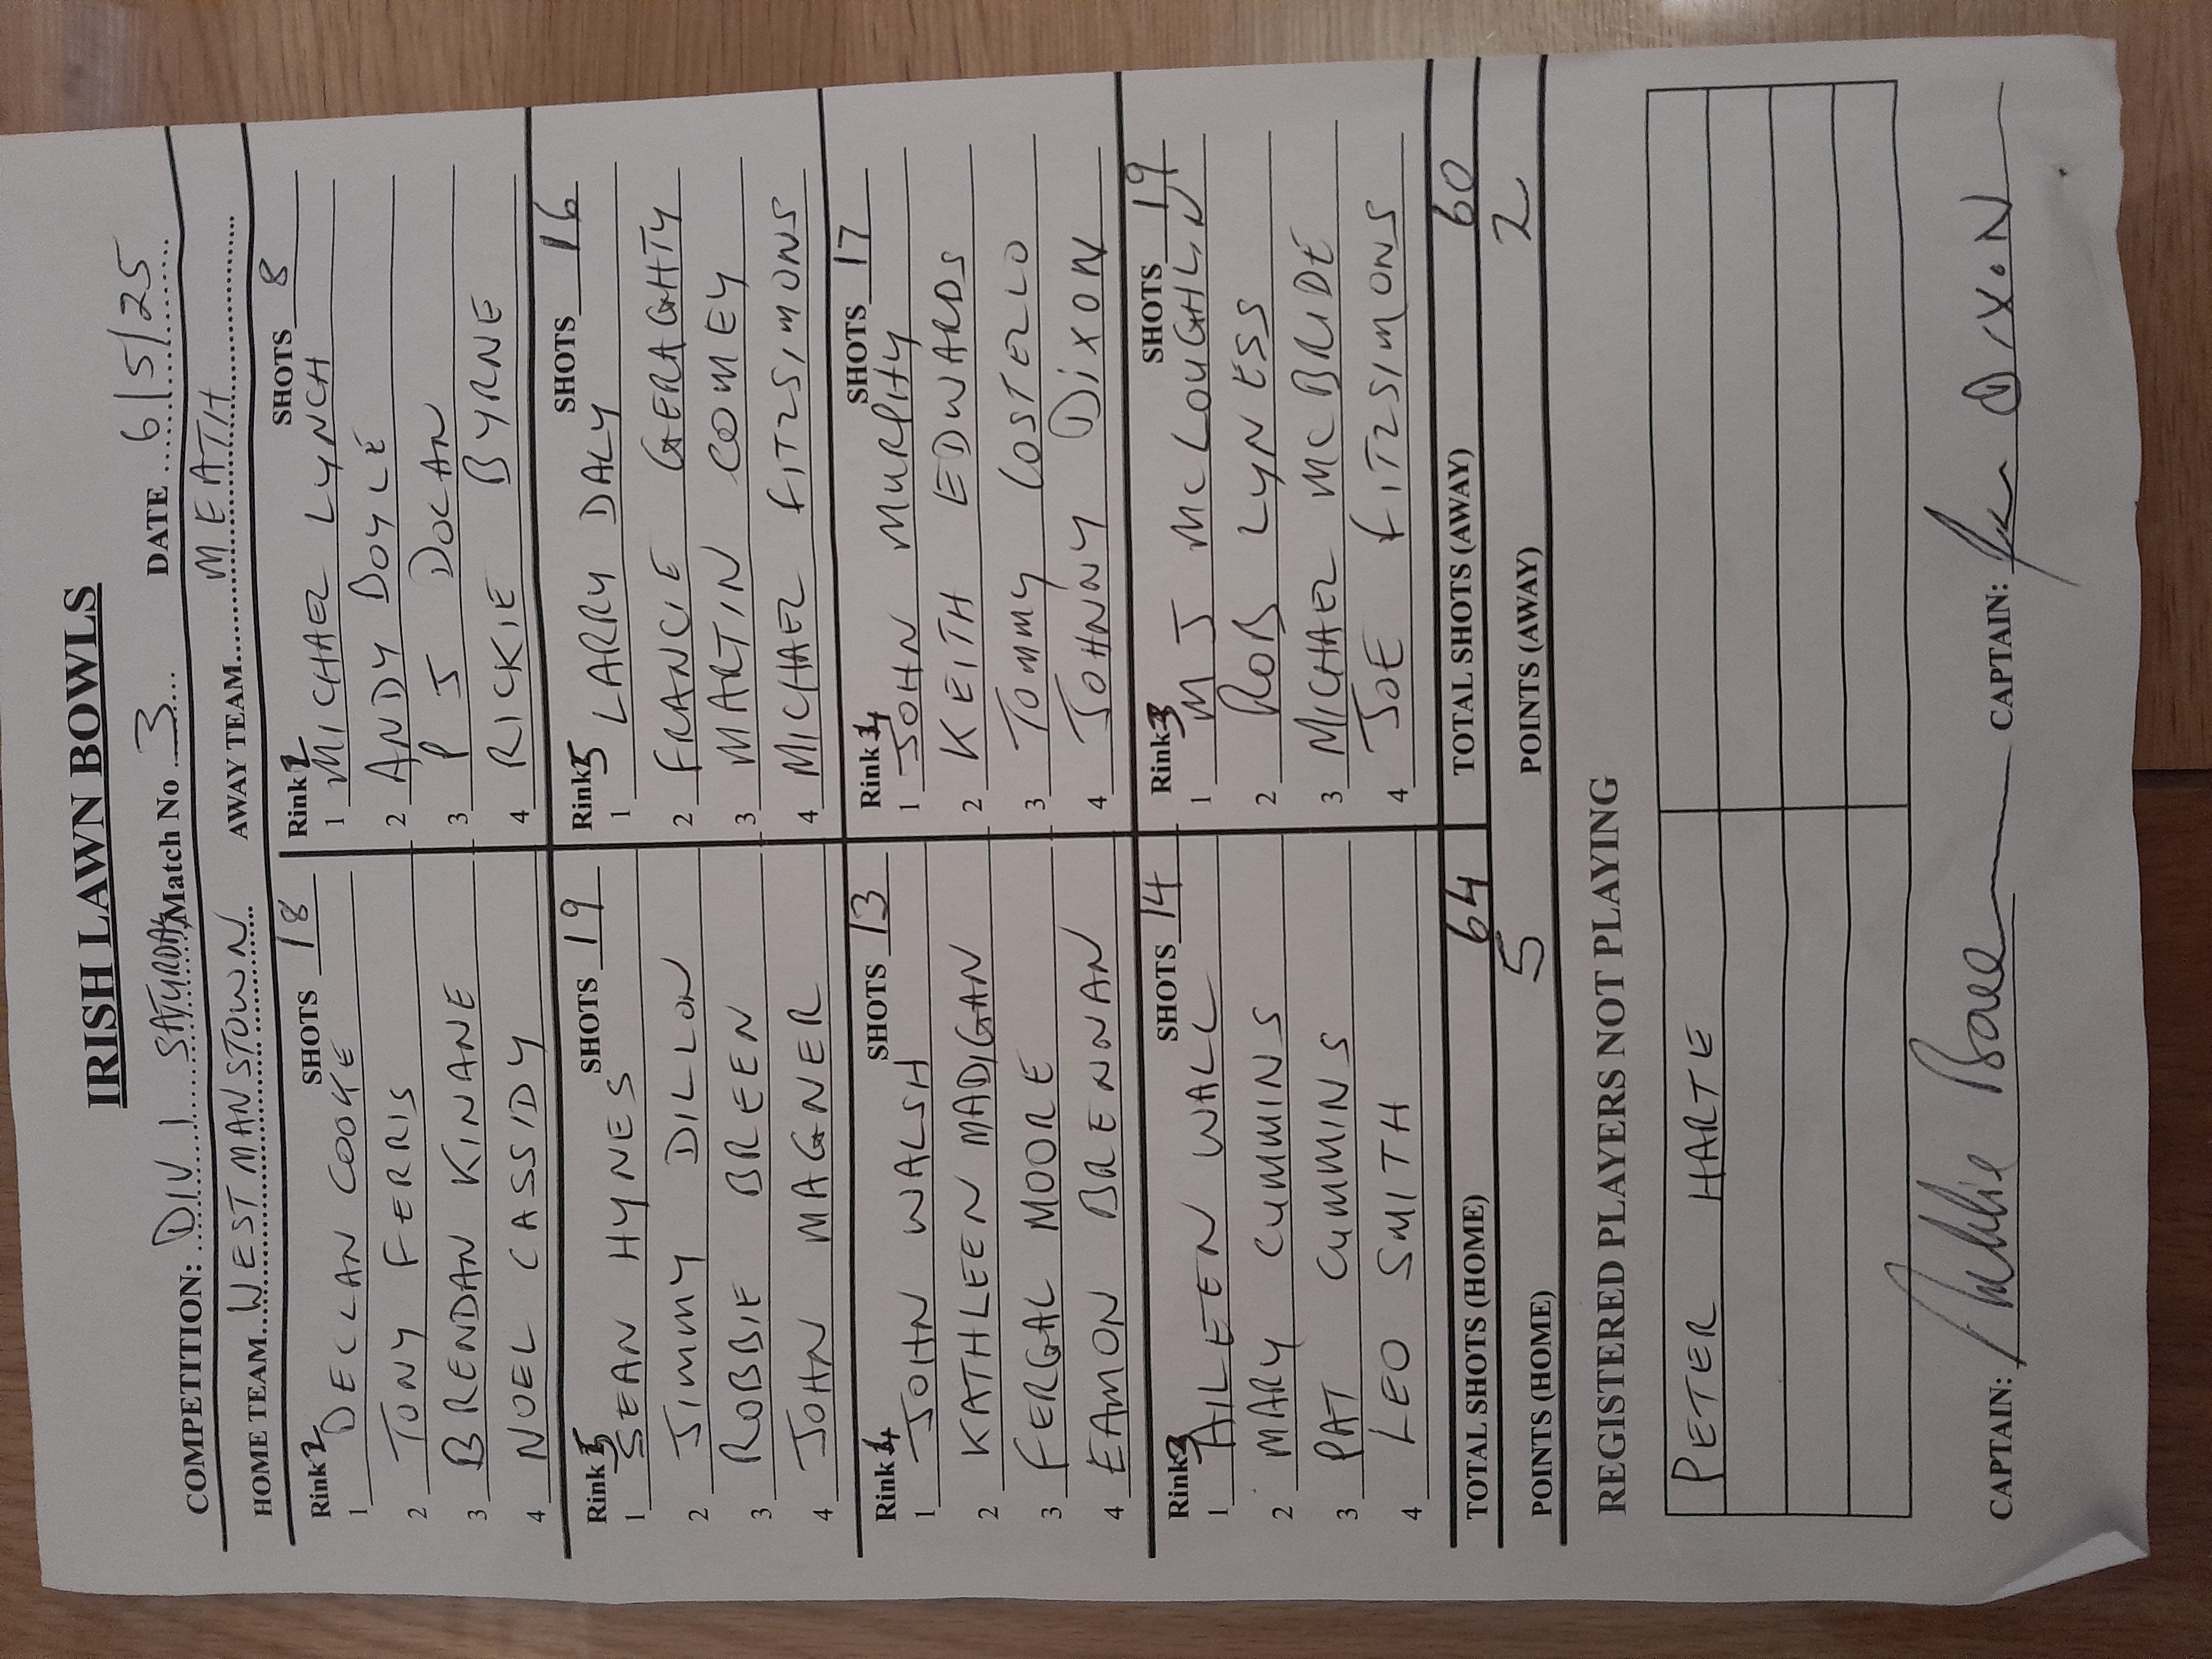 IRISH LAWN BOWLS
COMPETITION: DIV 1 SATURDAY Match No 3 DATE 6/5/25
HOME TEAM WESTMANSTOWN AWAY TEAM MEATH
Rink 2 SHOTS 18 Rink 2 SHOTS 8
1 DECLAN COOKE 1 MICHAEL LYNCH
2 TONY FERRIS 2 ANDY DOYLE
3 BRENDAN KINANE 3 P J DOLAN
4 NOEL CASSIDY 4 RICKIE BYRNE
Rink 5 SHOTS 19 Rink 5 SHOTS 16
1 SEAN HYNES 1 LARRY DALY
2 JIMMY DILLON 2 FRANCIE GERAGHTY
3 ROBBIE BREEN 3 MARTIN COMEY
4 JOHN MAGNER 4 MICHAEL FITZSIMONS
Rink 4 SHOTS 13 Rink 4 SHOTS 17
1 JOHN WALSH 1 JOHN MURPHY
2 KATHLEEN MADIGAN 2 KEITH EDWARDS
3 FERGAL MOORE 3 TOMMY COSTELLO
4 EAMON BRENNAN 4 JOHNNY DIXON
Rink 3 SHOTS 14 Rink 3 SHOTS 19
1 AILEEN WALL 1 M J MCLOUGHLIN
2 MARY CUMMINS 2 ROB LYNESS
3 PAT CUMMINS 3 MICHAEL MCBRIDE
4 LEO SMITH 4 JOE FITZSIMONS
TOTAL SHOTS (HOME) 64 TOTAL SHOTS (AWAY) 60
POINTS (HOME) 5 POINTS (AWAY) 2
REGISTERED PLAYERS NOT PLAYING
PETER HARTE
CAPTAIN: CAPTAIN: DIXON